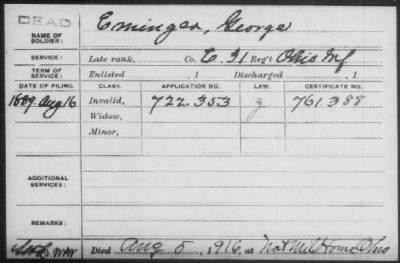 DEAD
NAME OF SOLDIER: Eminger, George
SERVICE: Late rank, Co. E. 71 Reg't Ohio Inf
TERM OF SERVICE: Enlisted , 1 Discharged , 1
DATE OF FILING. CLASS. APPLICATION NO. LAW. CERTIFICATE NO.
1889. Aug 16 Invalid, 722.353 g 761.388
Widow,
Minor,
ADDITIONAL SERVICES:
REMARKS:
Died Aug 5, 1916, at Nat Mil Home Ohio